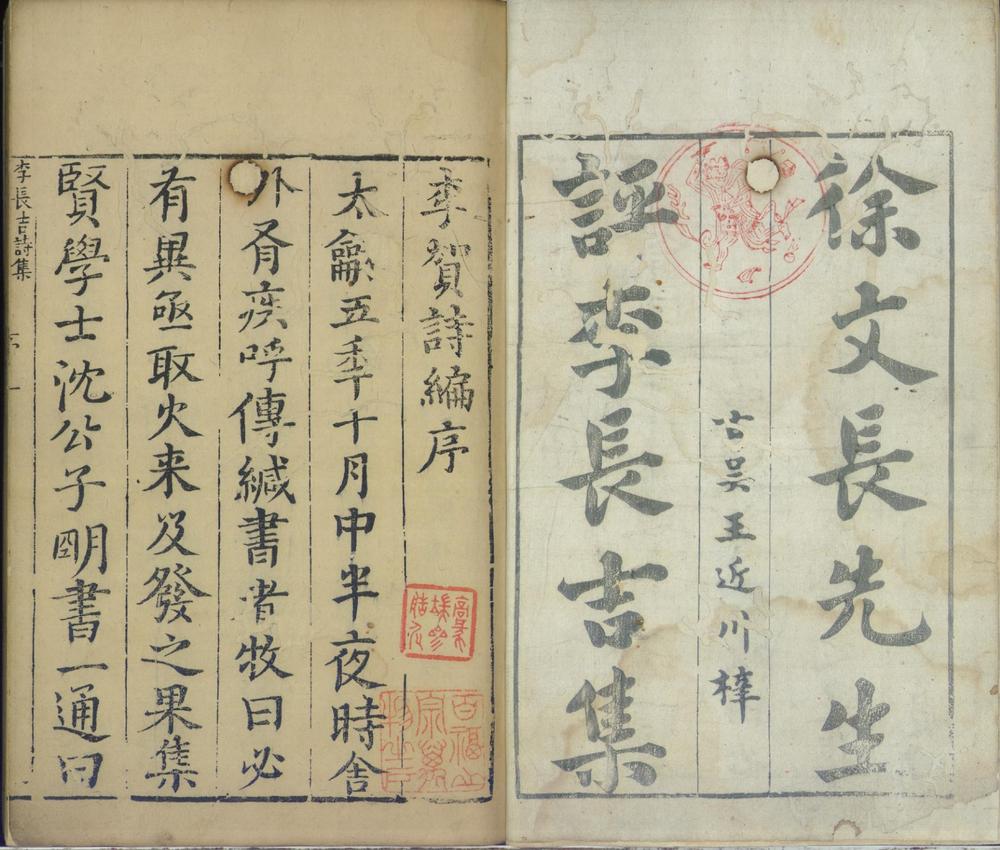 徐文長先生
古吴王近川梓
評李長吉集
李賀詩編序
太龢五秊十月中半夜時舍
外有疾呼傳緘書者牧曰必
有異亟取火来及發之果集
賢學士沈公子明書一通曰
李長吉詩集
序
一